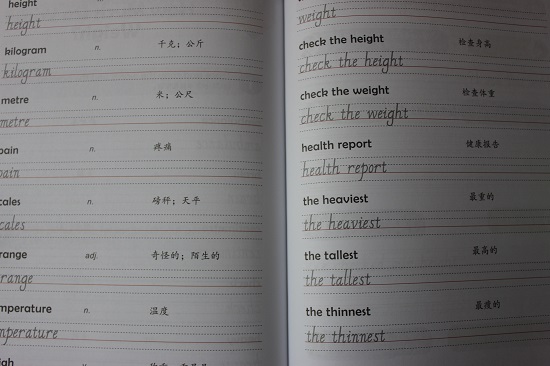 height
height
kilogram n. 千克；公斤
kilogram
metre n. 米；公尺
metre
pain n. 疼痛
pain
cales n. 磅秤；天平
cales
range adj. 奇怪的；陌生的
range
mperature n. 温度
mperature
igh
weight
check the height 检查身高
check the height
check the weight 检查体重
check the weight
health report 健康报告
health report
the heaviest 最重的
the heaviest
the tallest 最高的
the tallest
the thinnest 最瘦的
the thinnest